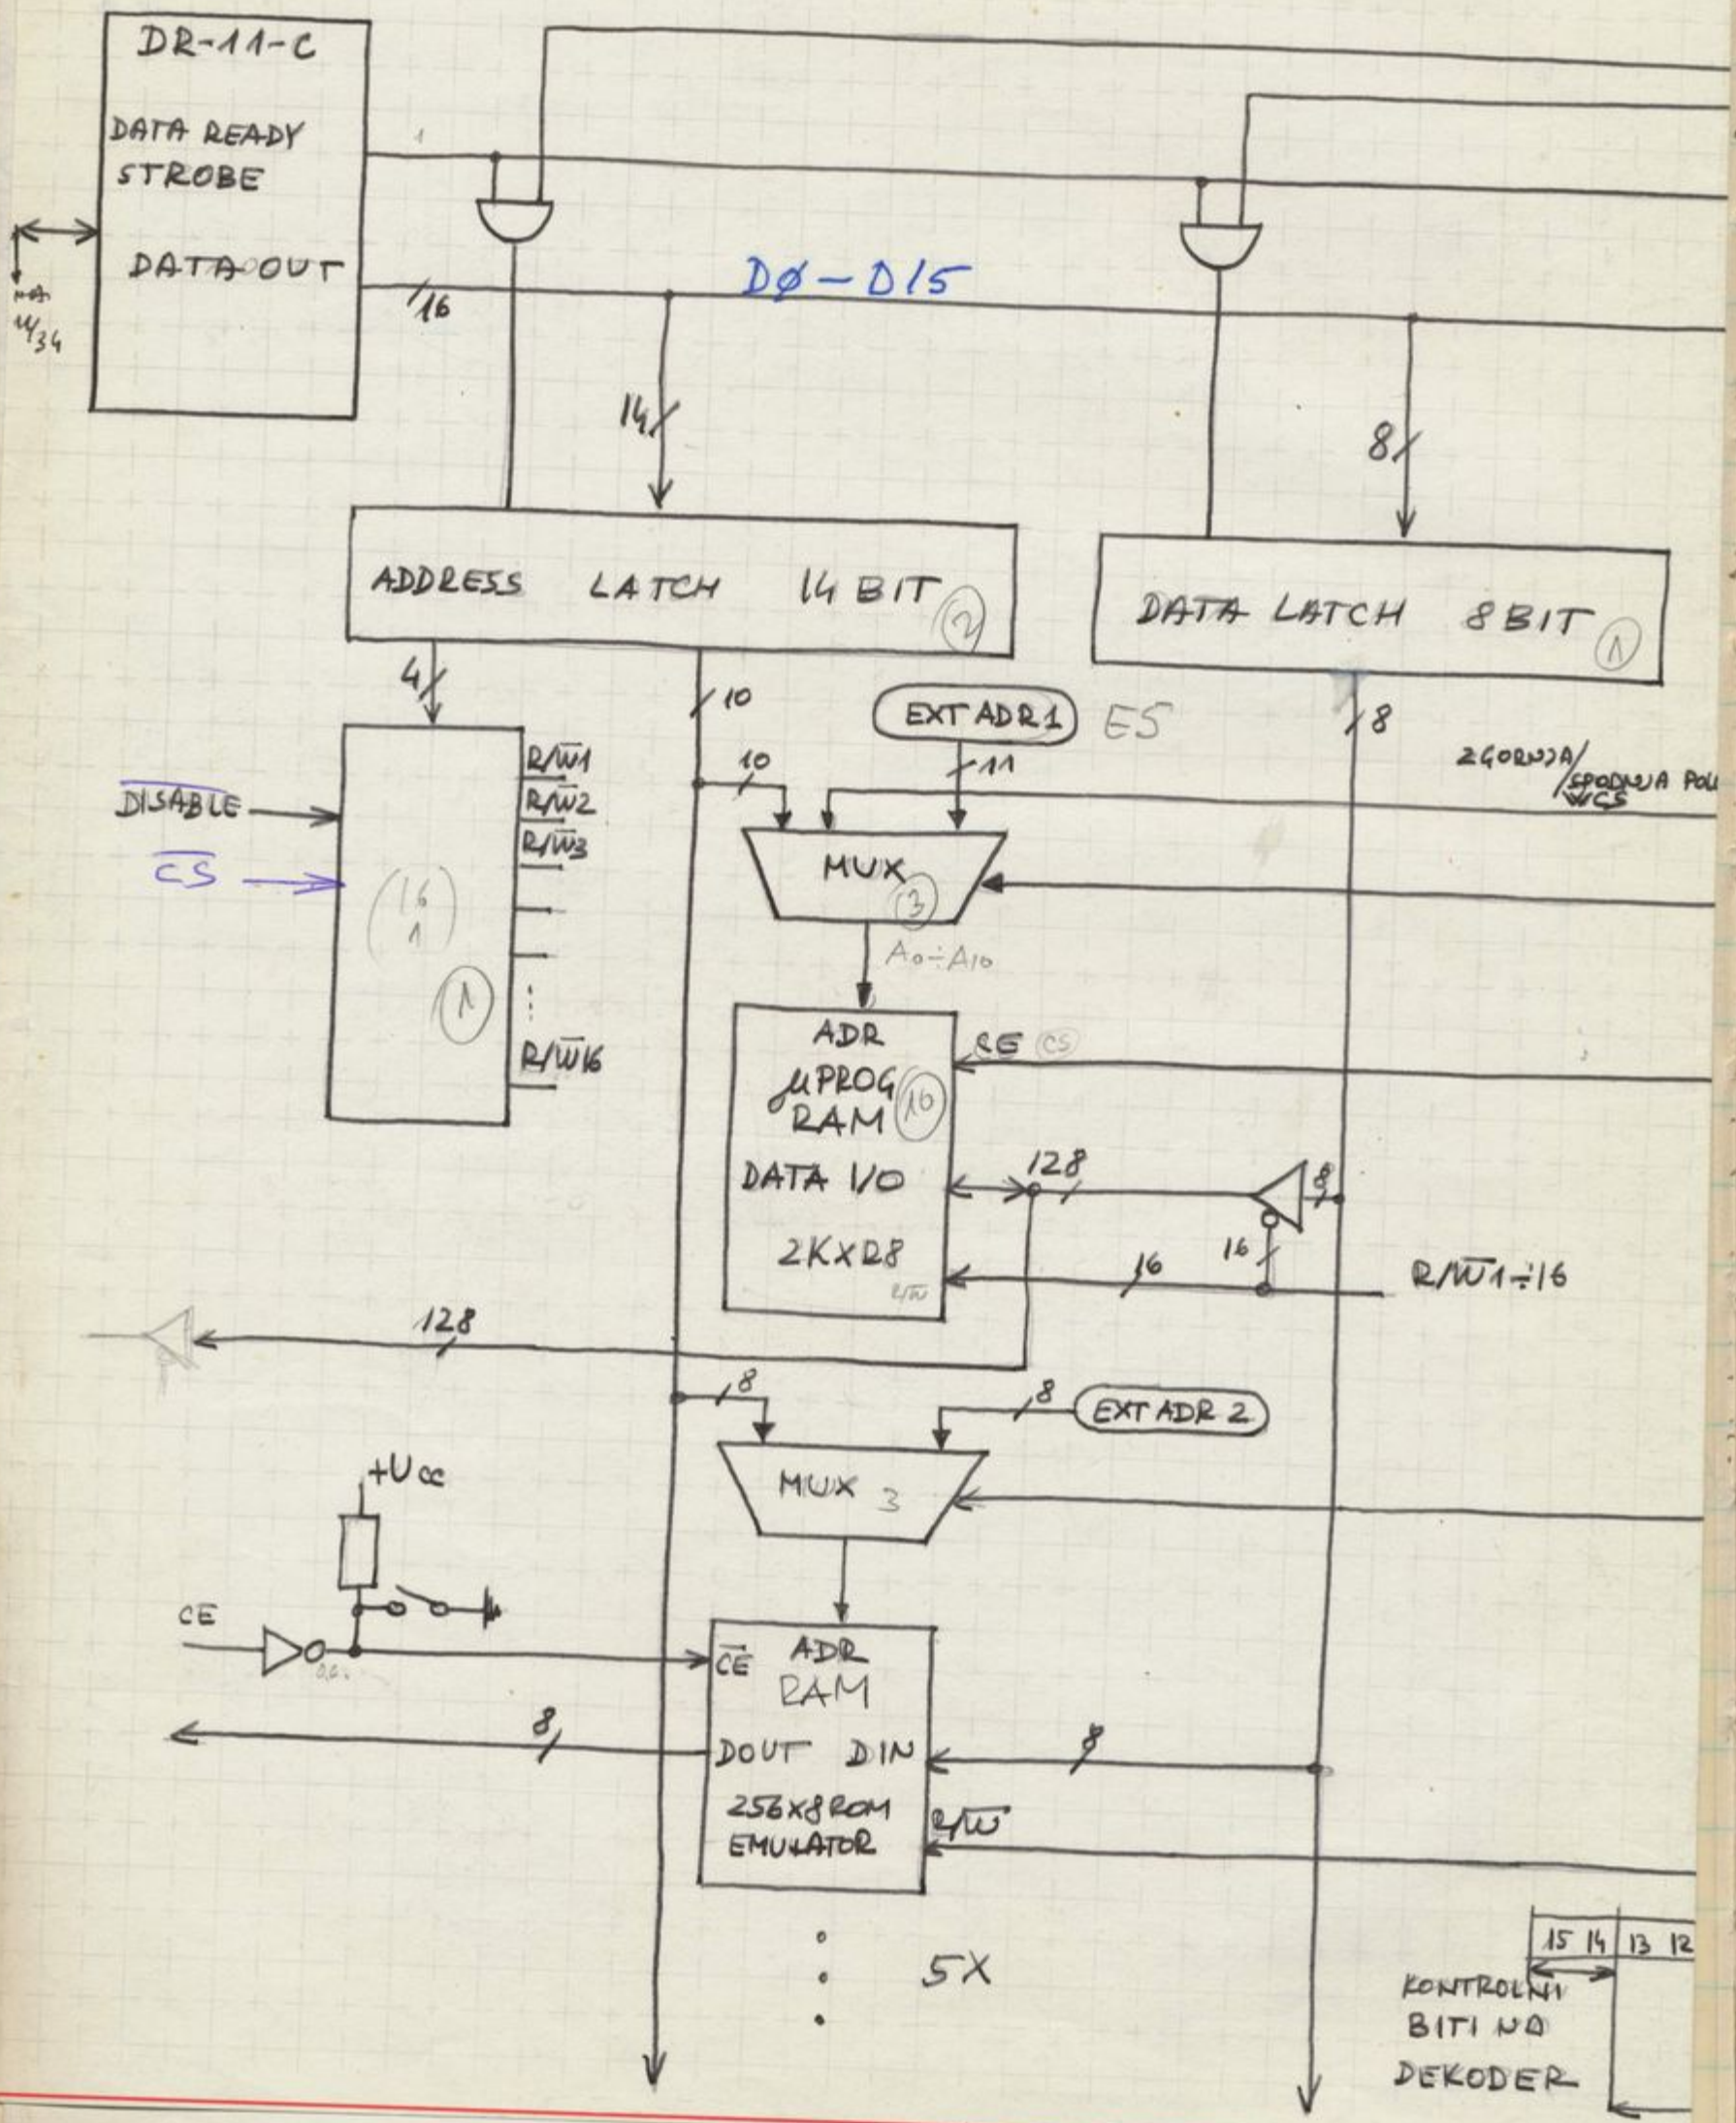 DR-11-C
DATA READY
STROBE
1
DATA OUT
16
DØ-D15
NA
11/34
14
8
ADDRESS LATCH 14 BIT 2
DATA LATCH 8 BIT 1
4
10
EXT ADR1 E5
8
10
11
ZGORNJA/
SPODNJA POL
WCS
DISABLE
CS
R/W1
R/W2
R/W3
R/W16
16
1
1
MUX
3
A0÷A10
ADR
CE CS
μPROG
RAM
16
DATA I/O
128
8
2KX128
R/W
16
16
R/W1÷16
128
8
8
EXT ADR 2
MUX 3
+Ucc
CE
O.C.
CE
ADR
RAM
8
DOUT DIN
8
256X8 ROM
EMULATOR
R/W
5X
15 14 13 12
KONTROLNI
BITI NA
DEKODER